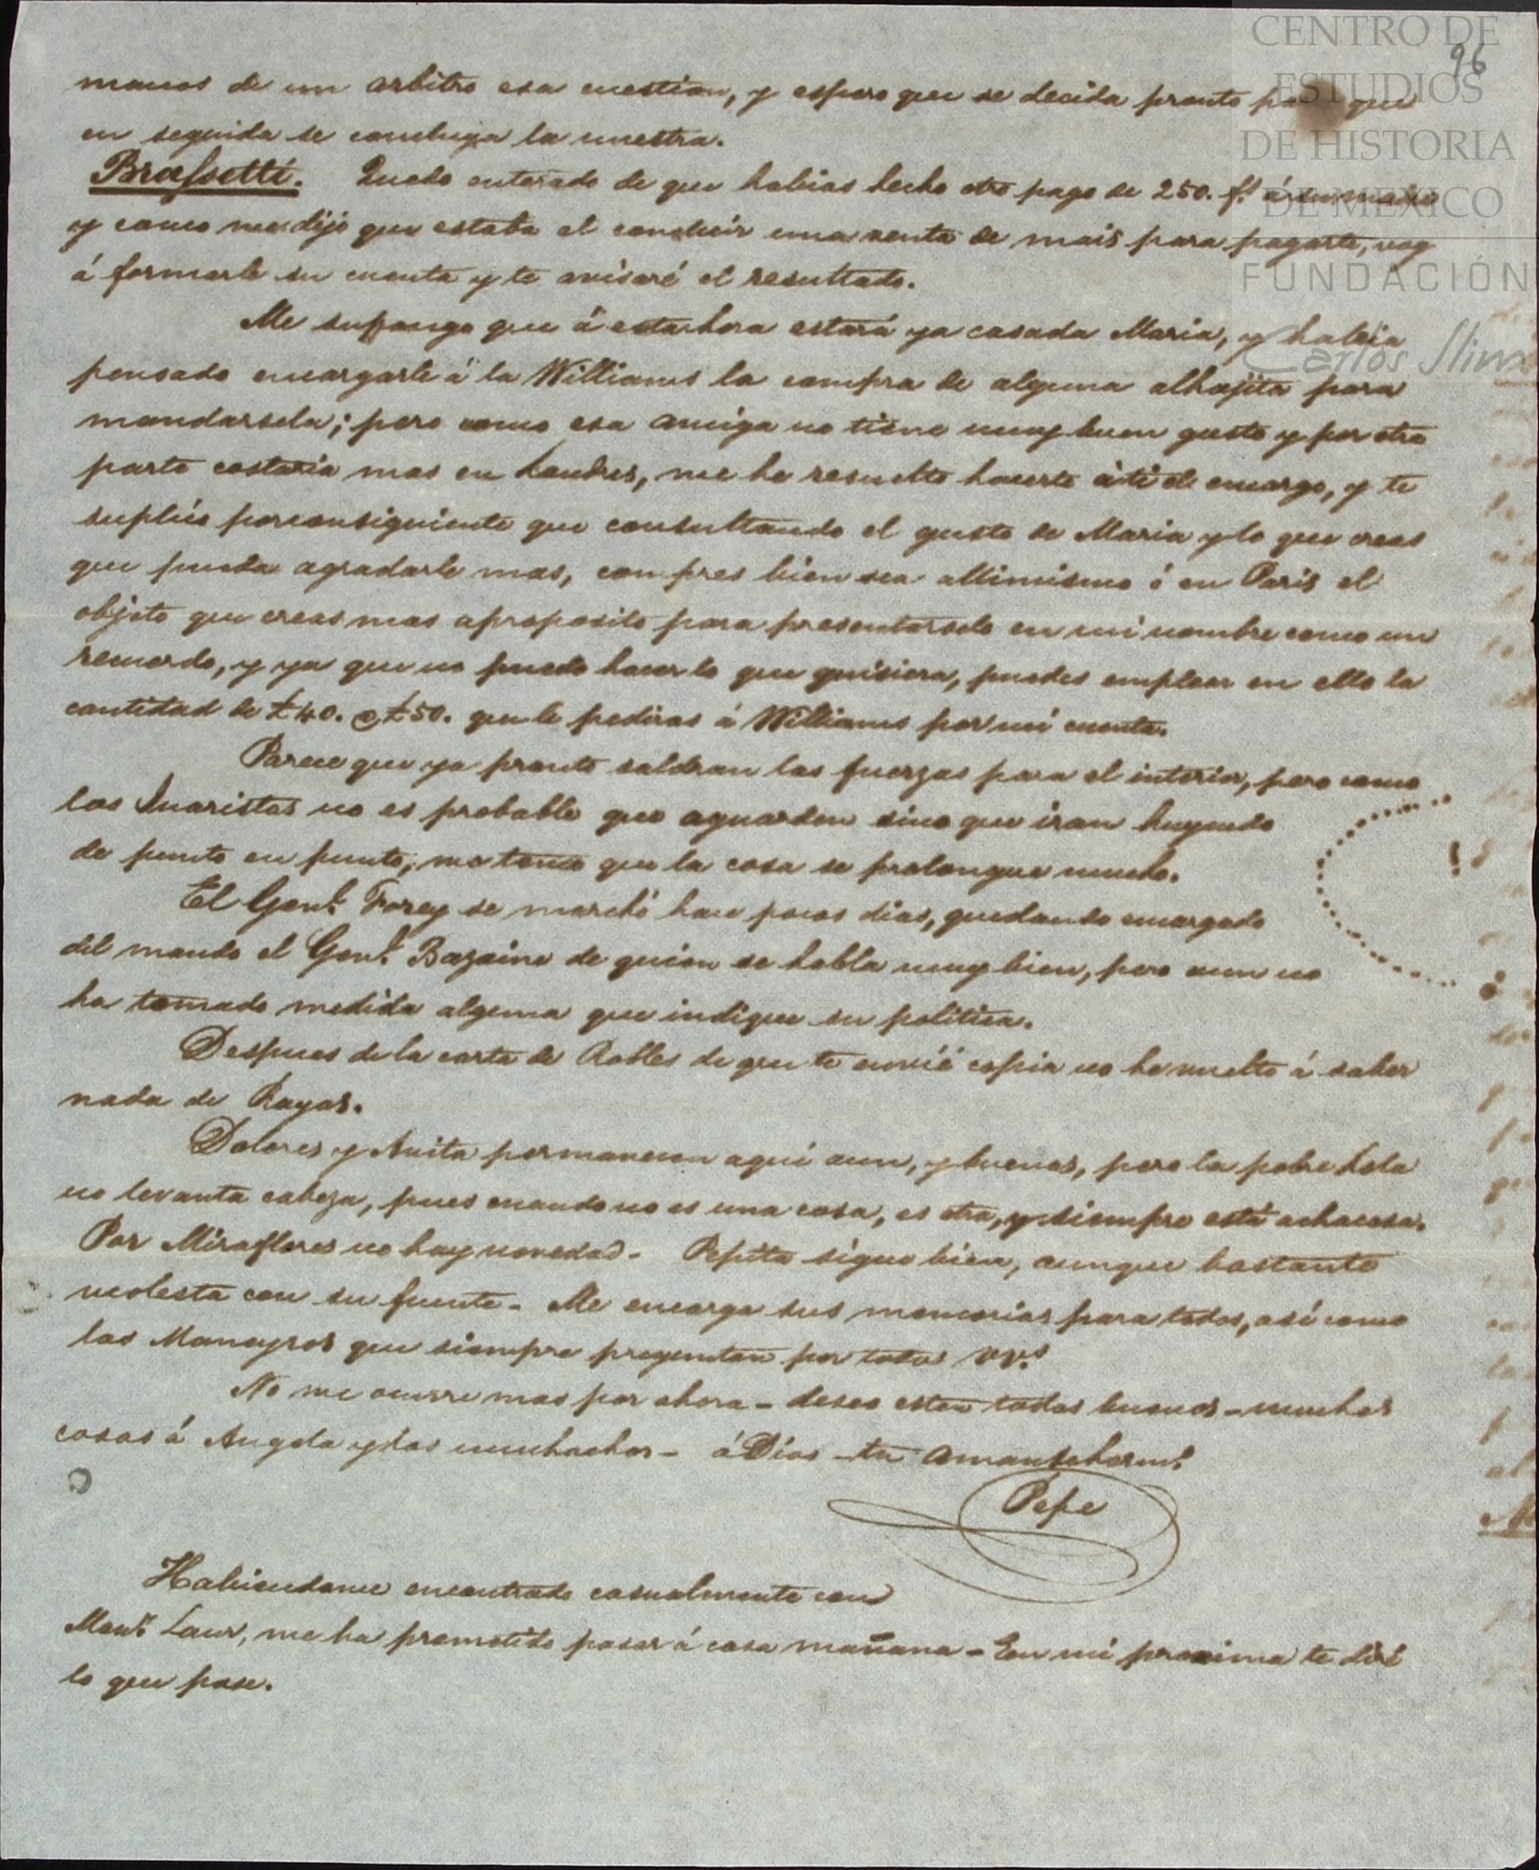 CENTRO DE
ESTUDIOS
DE HISTORIA
DE MEXICO
FUNDACIÓN
Carlos Slim
96
manos de un arbitro esa cuestion, y espero que se decida pronto para que
en seguida se concluya la nuestra.
Brassetti. Quedo enterado de que habias hecho otro pago de 250. f.s á su madre
y como me dijo que estaba al concluir una venta de mais para pagarte, voy
á formarle su cuenta y te avisaré el resultado.
Me supongo que á esta hora estará ya casada Maria, y habia
pensado encargarle á la Williams la compra de alguna alhajita para
mandarsela; pero como esa amiga no tiene muy buen gusto y por otra
parte costaria mas en Londres, me he resuelto hacerte á ti el encargo, y te
suplico porconsiguiente que consultando el gusto de Maria y lo que creas
que pueda agradarle mas, compres bien sea alli mismo ó en Paris el
objeto que creas mas aproposito para presentarselo en mi nombre como un
recuerdo, y ya que no puedo hacer lo que quisiera, puedes emplear en ello la
cantidad de £40. @ £50. que le pediras á Williams por mi cuenta.
Parece que ya pronto saldran las fuerzas para el interior, pero como
los Juaristas no es probable que aguarden sino que iran huyendo
de punto en punto, me temo que la cosa se prolongue mucho.
El Genl. Forey se marchó hace pocos dias, quedando encargado
del mando el Genl. Bazaine de quien se habla muy bien, pero aun no
ha tomado medida alguna que indique su politica.
Despues de la carta de Robles de que te envié copia no he vuelto á saber
nada de Rayas.
Dolores y Anita permanecen aqui aun, y buenas, pero la pobre Lola
no levanta cabeza, pues cuando no es una cosa, es otra, y siempre está achacosa.
Por Miraflores no hay novedad - Pepita sigue bien, aunque bastante
molesta con su fuente - Me encarga sus memorias para todos, asi como
las Moncayos que siempre preguntan por todos VV.s
No me ocurre mas por ahora - deseo esten todos buenos - muchas
cosas á Angela y los muchachos - á Dios - tu amante herm.o
Pepe
Habiendome encontrado casualmente con
Monr. Laur, me ha prometido pasar á casa mañana - En mi proxima te diré
lo que pase.